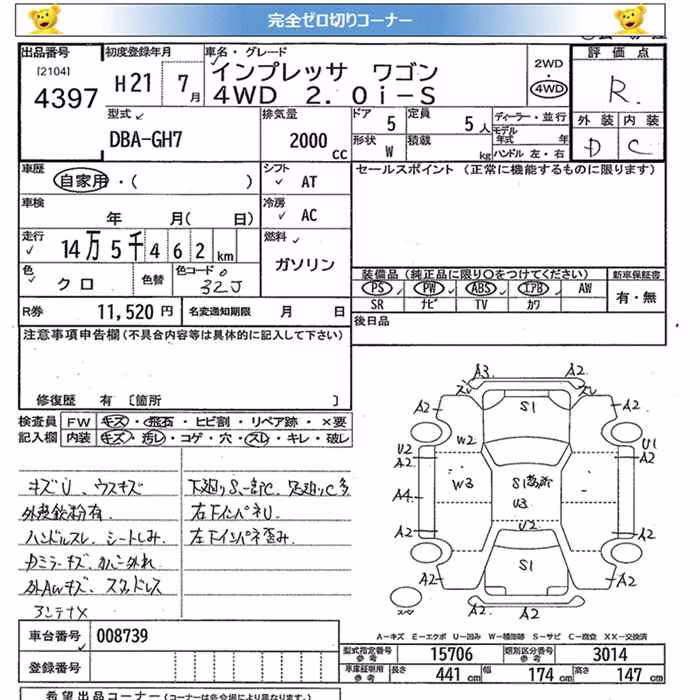 完全ゼロ切りコーナー
出品番号
[2104]
4397
初度登録年月
H21 7月
車名・グレード
インプレッサ ワゴン
4WD 2.0i-S
2WD
4WD
評価点
R
外装 内装
D C
型式
DBA-GH7
排気量
2000 CC
ドア
5
定員
5人
形状
W
積載
kg
ディーラー・並行
モデル年式 年
ハンドル 左・右
車歴
自家用・( )
シフト
AT
セールスポイント (正常に機能するものに限ります)
車検
年 月( 日)
冷房
AC
走行
14万5千462km
燃料
ガソリン
色
クロ
色替
色コード
32J
装備品(純正品に限り〇をつけてください)
PS PW ABS エアB AW
SR ナビ TV カワ
新車保証書
有・無
R券
11,520円
名変通知期限
月 日
後日品
注意事項申告欄(不具合内容等は具体的に記入して下さい)
修復歴 有[箇所 ]
検査員
記入欄
FW キズ・飛石・ヒビ割・リペア跡・×要
内装 キズ・汚レ・コゲ・穴・スレ・キレ・破レ
キズU、ウスキズ
外装鉄粉有
ハンドルスレ、シートしみ
カバー外れ
外AWキズ、スタッドレス
アンテナX
下廻りS一部C、足廻りC多
右下インパネU
右下インパネ歪み
A3
A2
スレ
S1
スレ
A2
A2
W2
U2
A2
U1
A2
A4
W3
S1箇所
U3
U2
A2
A2
S1
A2
A2
A2
スペア
A-キズ E-エクボ U-凹み W-補修跡 S-サビ C-腐食 XX-交換済
車台番号
008739
登録番号
型式指定番号
参考
15706
類別区分番号
参考
3014
車庫証明用
参考
長さ
441 cm
幅
174 cm
高さ
147 cm
希望出品コーナー(コーナーは各会場により異なります)